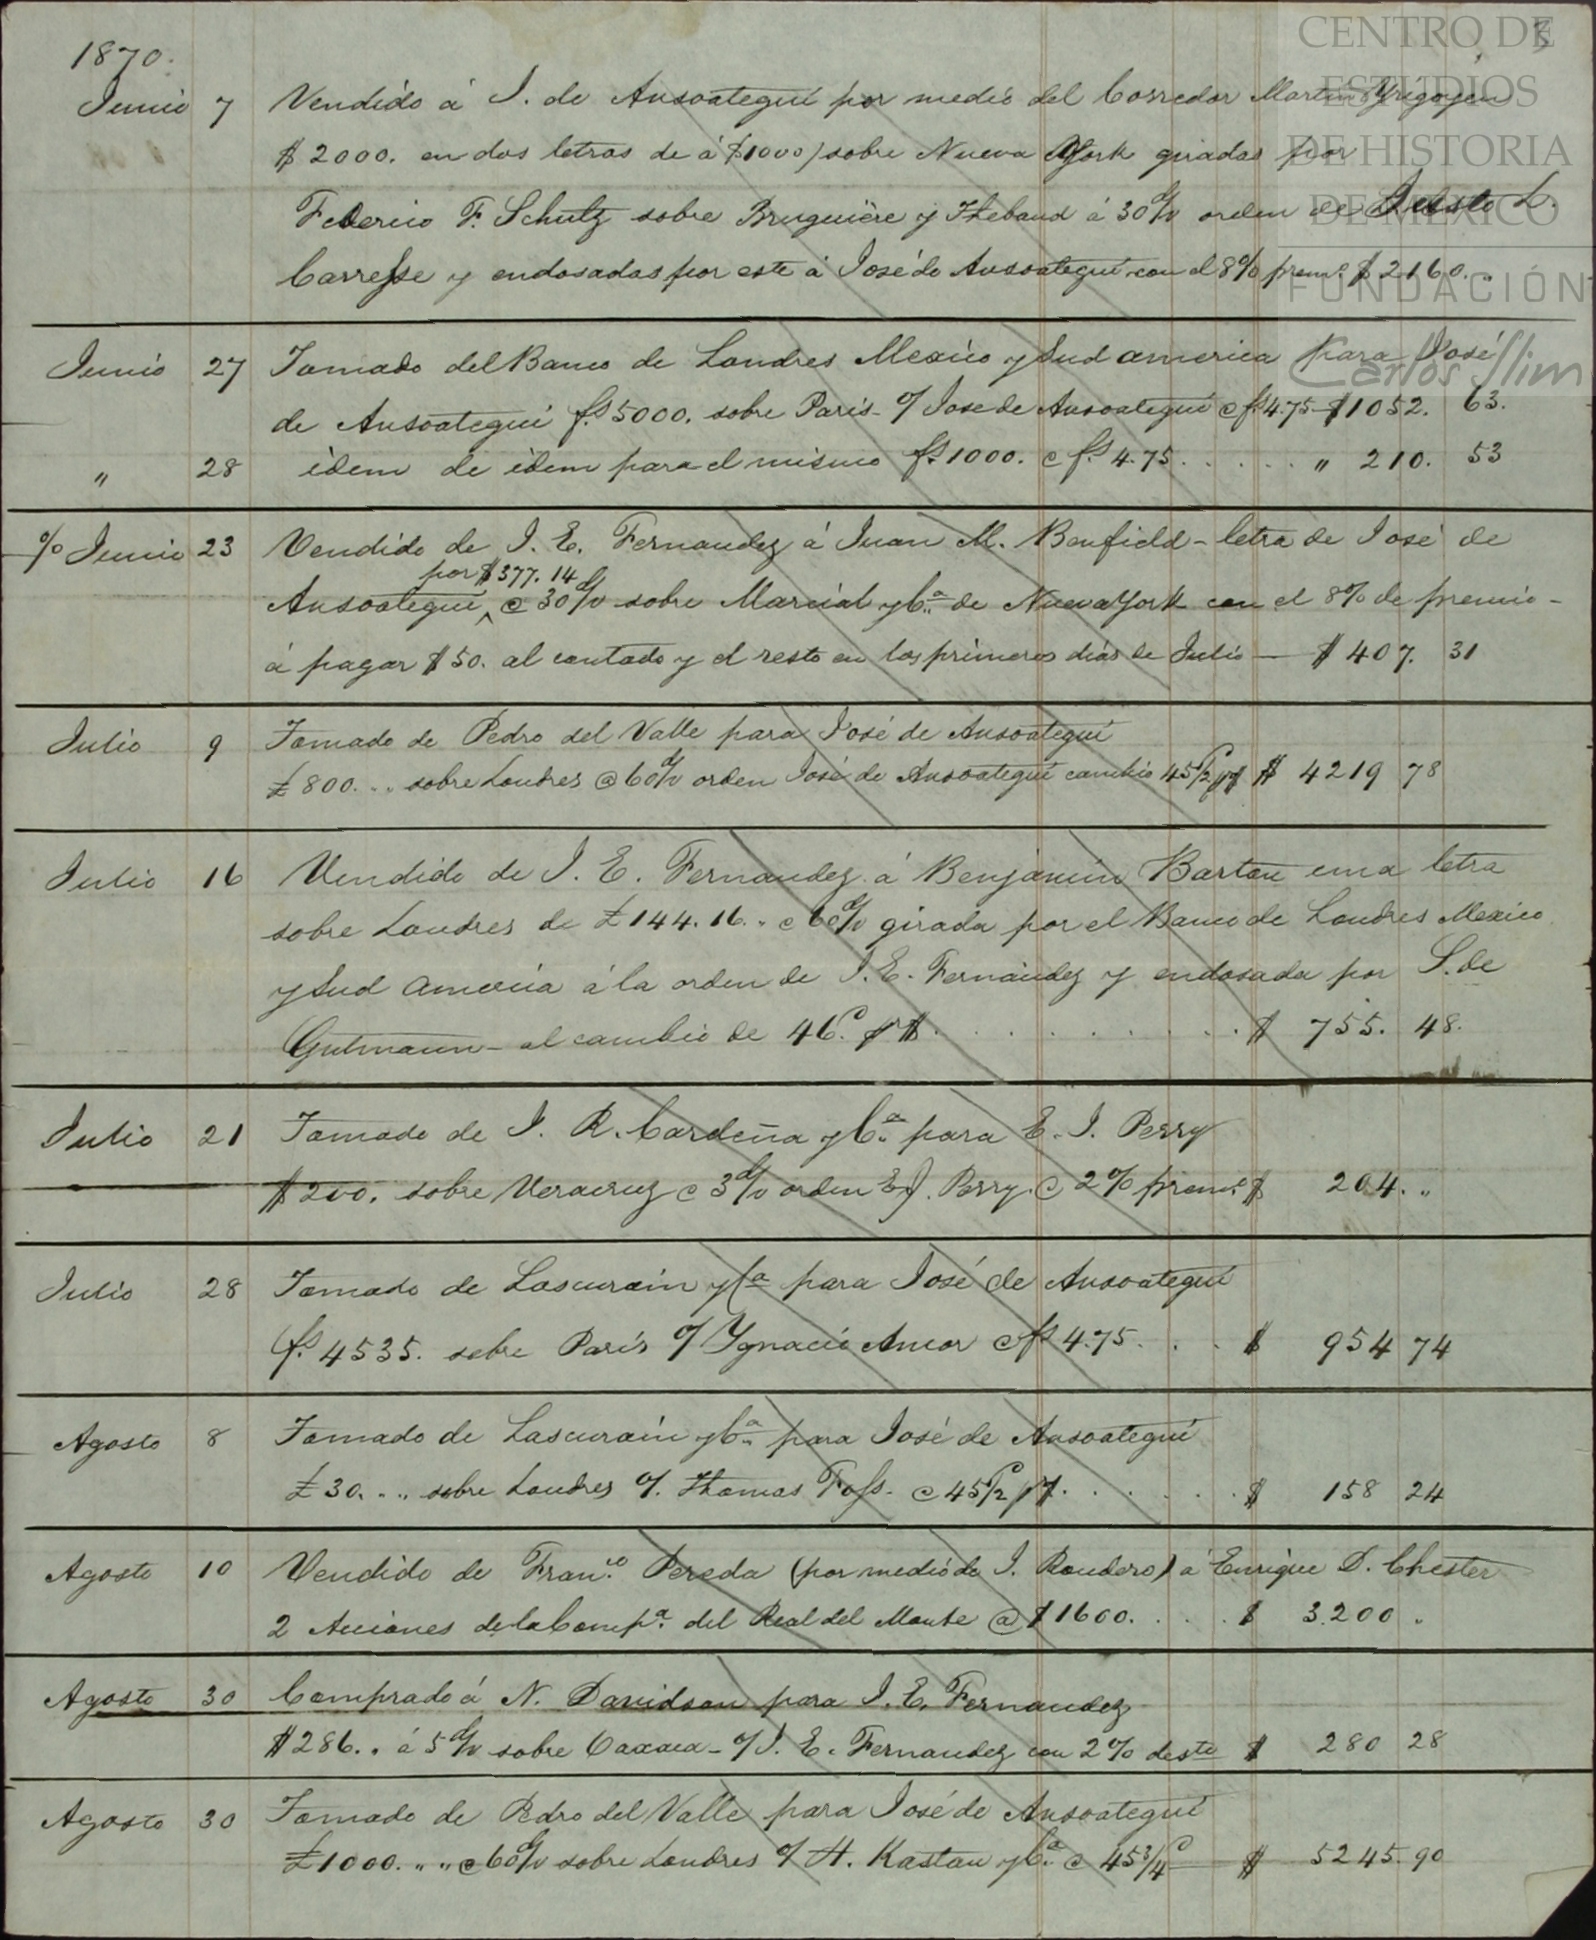 3
1870.
Junio 7 Vendido á J. de Ansoategui por medio del Corredor Martin Yrigoyen
$ 2000. en dos letras de á $1000) sobre Nueva York giradas por
Federico F. Schultz sobre Bruguière y Thebaud á 30 d/v orden de Justo L.
Carresse y endosadas por este á José de Ansoategui con el 8% premo. $ 2160. ..
Junio 27 Tomado del Banco de Londres Mexico y Sud america para José
de Ansoategui fs. 5000. sobre Paris - o/ Jose de Ansoategui @ fs 4.75 $ 1052. 63.
" 28 idem de idem para el mismo fs. 1000. @ fs. 4.75 . . . . . " 210. 53
% Junio 23 Vendido de J. E. Fernandez á Juan M. Benfield - letra de José de
por $ 377. 14
Ansoategui @ 30 d/v sobre Marcial y Ca. de Nueva York con el 8% de premio -
á pagar $ 50. al contado y el resto en los primeros dias de Julio — $ 407. 31
Julio 9 Tomado de Pedro del Valle para José de Ansoategui
£ 800. .. sobre Londres @ 60 d/v orden José de Ansoategui cambio 45 1/2 p $ $ 4219 78
Julio 16 Vendido de J. E. Fernandez á Benjamin Barton una letra
sobre Londres de £ 144. 16. .. @ 60 d/v girada por el Banco de Londres Mexico
y Sud America á la orden de J. E. Fernández y endosada por S. de
Gutmann - al cambio de 46 p. p $. . . . . . . . . . $ 755. 48.
Julio 21 Tomado de J. R. Cardeña y Ca. para E. J. Perry
$ 200. sobre Veracruz @ 3 d/v orden E J. Perry. @ 2% premo. $ 204. "
Julio 28 Tomado de Lascurain y Ca para José de Ansoategui
fs. 4535. sobre Paris o/ Ygnacio Amor @ fs 4.75. . . . $ 954 74
Agosto 8 Tomado de Lascurain y Ca. para José de Ansoategui
£ 30. " " sobre Londres o/. Thomas Foss. @ 45 1/2 p $. . . . . . . $ 158 24
Agosto 10 Vendido de Franco. Pereda (por medio de J. Rondero) á Enrique D. Chester
2 Acciones de la Compa. del Real del Monte @ $ 1600. . . . $ 3.200 "
Agosto 30 Comprado á N. Davidson para J. E. Fernandez
$ 286. " á 5 d/v sobre Oaxaca - o/ J. E. Fernandez con 2% desto $ 280 28
Agosto 30 Tomado de Pedro del Valle para José de Ansoategui
£ 1000. " " @ 60 d/v sobre Londres o/ H. Kastan y Ca. @ 45 3/4 p $ 5245. 90
CENTRO DE
ESTUDIOS
DE HISTORIA
DE MÉXICO
FUNDACIÓN
Carlos Slim